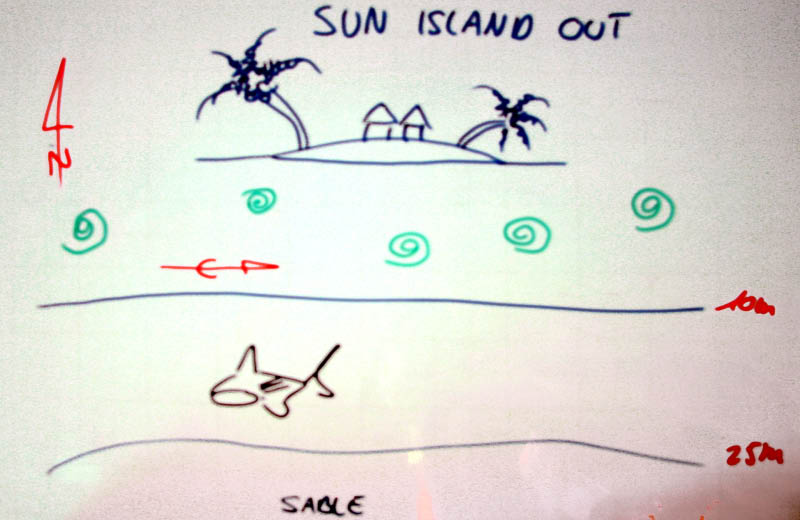 SUN ISLAND OUT
N
€
10m
25m
SABLE